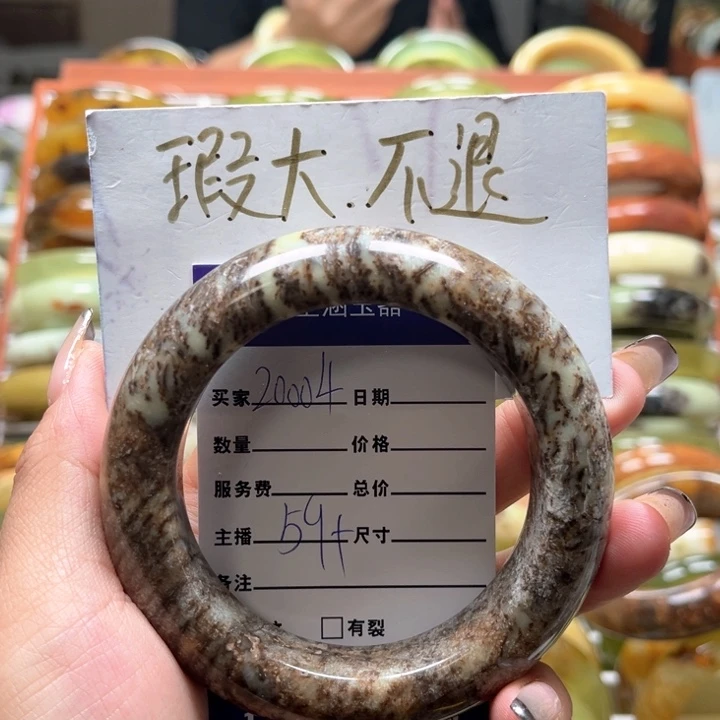 瑕大.不退
涵玉器
买家 20004 日期
数量 价格
服务费 总价
主播 59+ 尺寸
备注
□有裂